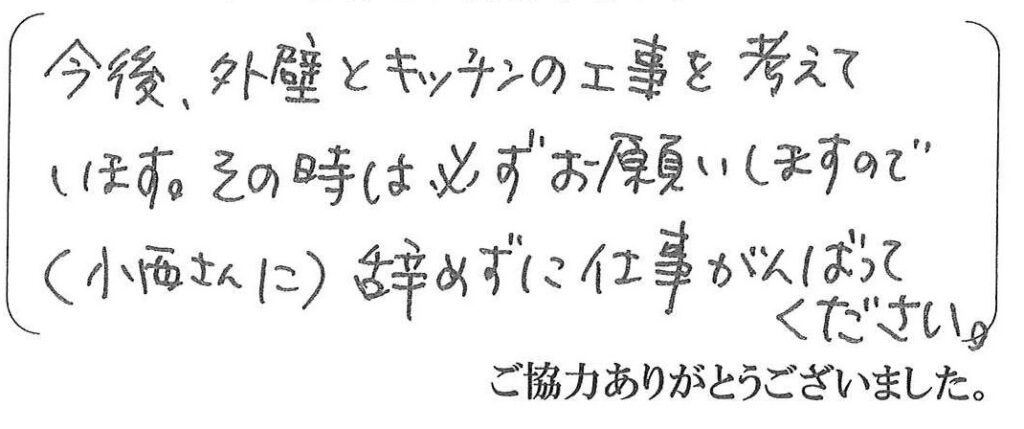 今後、外壁とキッチンの工事を考えて
います。その時は必ずお願いしますので
（小西さんに）辞めずに仕事がんばって
ください。
ご協力ありがとうございました。